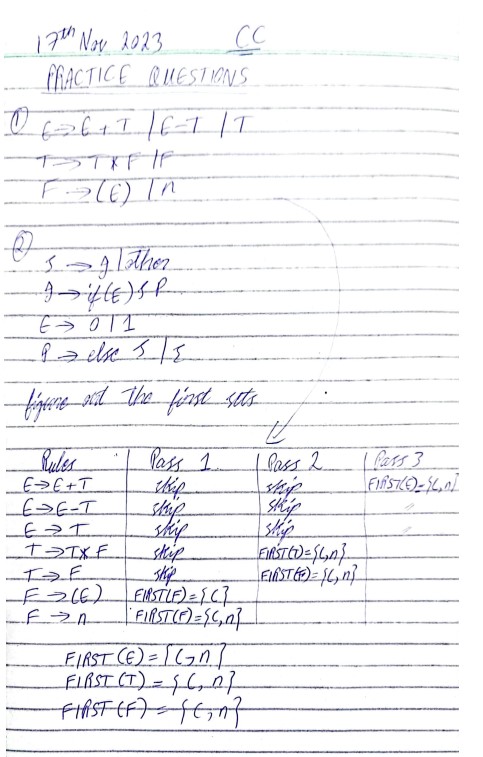 17th Nov 2023 CC
PRACTICE QUESTIONS
① E → E + T / E - T / T
T → T * F / F
F → (E) / n
② S → g / other
g → if (E) S P
E → 0 / 1
P → else S / ε
figure out the first sets
Rules Pass 1 Pass 2 Pass 3
E → E + T skip skip FIRST(E) = {(, n}
E → E - T skip skip "
E → T skip skip "
T → T * F skip FIRST(T) = {(, n}
T → F skip FIRST(F) = {(, n}
F → (E) FIRST(F) = {(}
F → n FIRST(F) = {(, n}
FIRST(E) = {(, n}
FIRST(T) = {(, n}
FIRST(F) = {(, n}